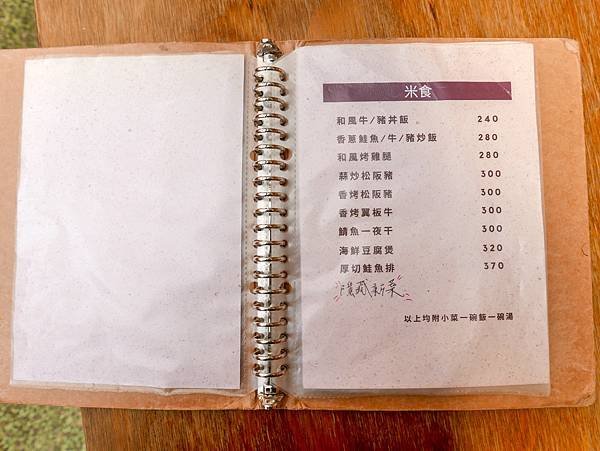 米食
和風牛/豬丼飯 240
香蔥鮭魚/牛/豬炒飯 280
和風烤雞腿 280
蒜炒松阪豬 300
香烤松阪豬 300
香烤翼板牛 300
鯖魚一夜干 300
海鮮豆腐煲 320
厚切鮭魚排 370
隱藏新菜
以上均附小菜一碗飯一碗湯